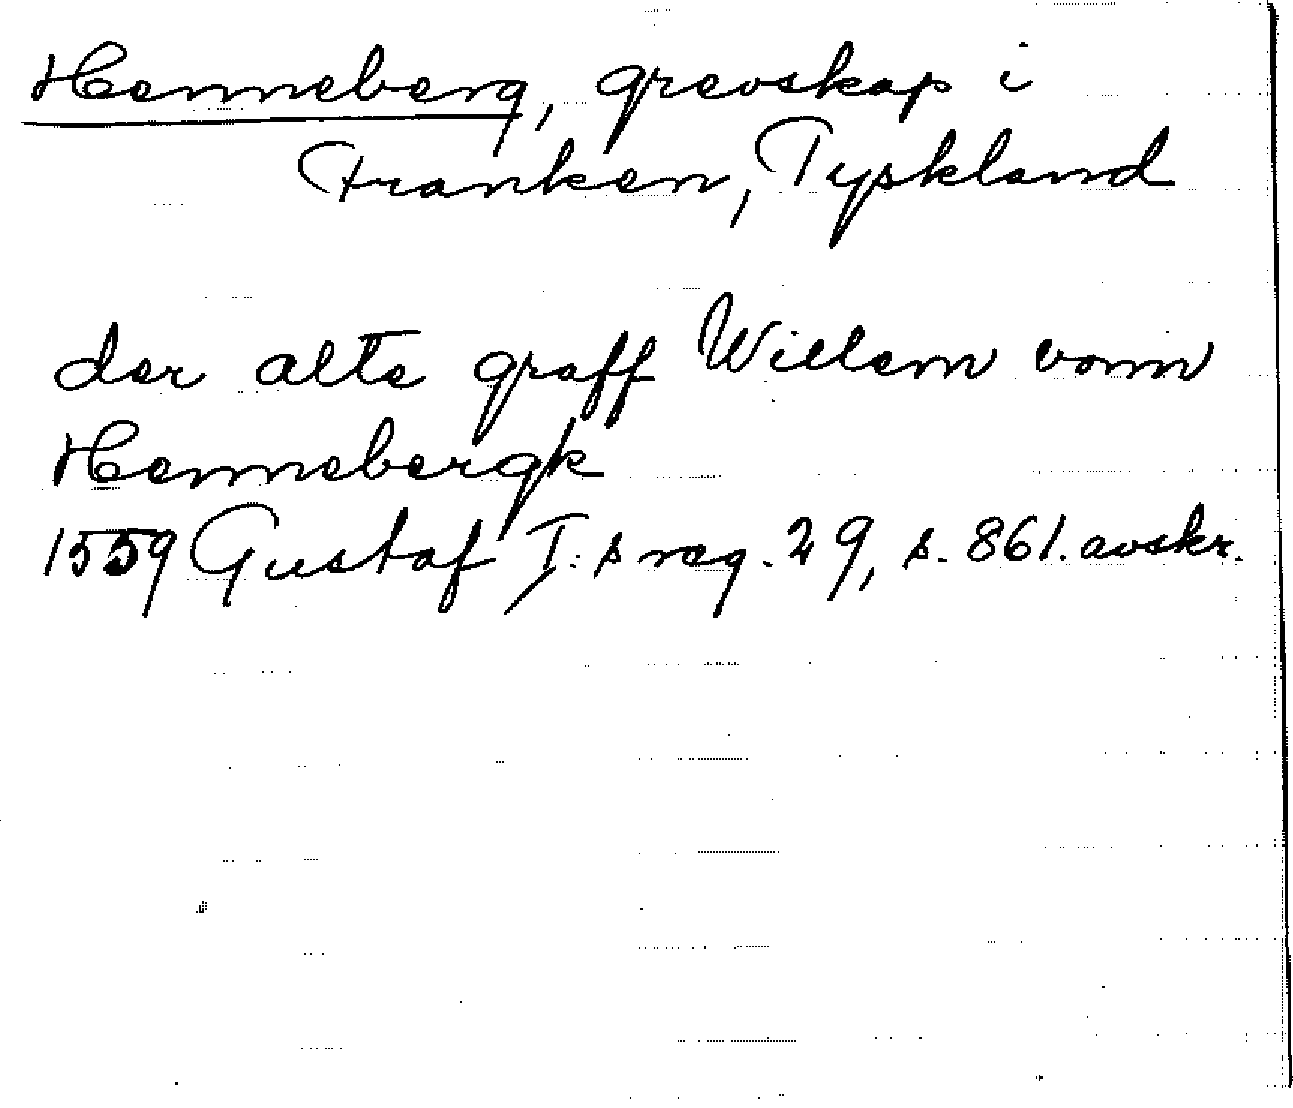 Henneberg, grevskap i
Franken, Tyskland
der alte graff Willem vonn
Hennebergk
1559 Gustaf I:s reg. 29, s. 861. avskr.